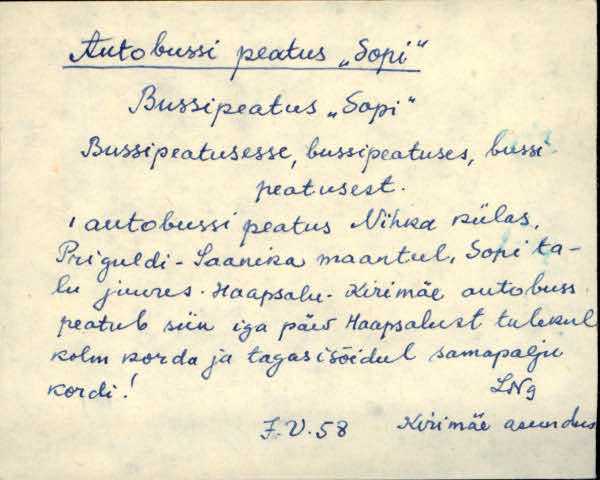 Autobussi peatus „Sopi“
Bussipeatus „Sopi“
Bussipeatusesse, bussipeatuses, bussi
peatusest.
autobussi peatus Nihka külas,
Priguldi - Saanika maantul, Sopi ta-
lu juures. Haapsalu - Kirimäe autobuss
peatub siin iga päev Haapsalust tulekul
kolm korda ja tagasisõidul samapalju
kordi!
LNg
7.V.58 Kirimäe asundus